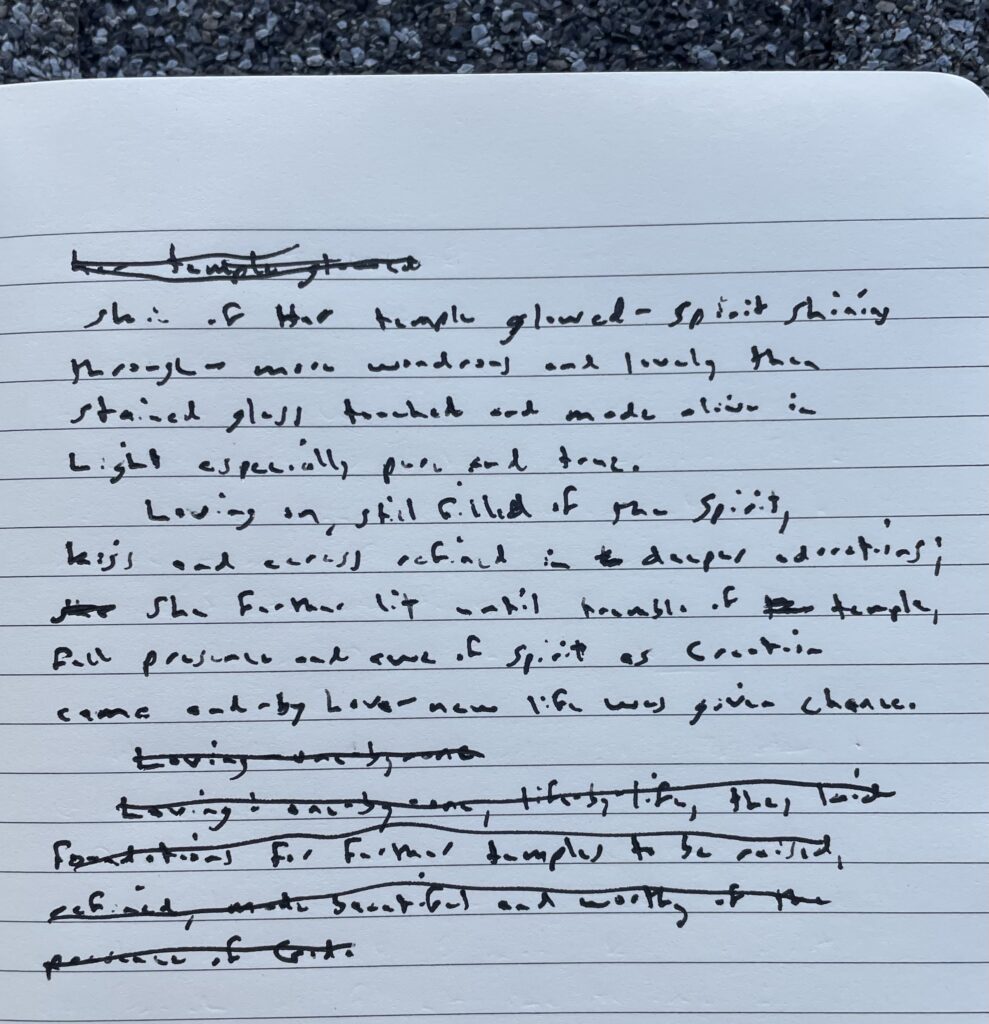 her temple glowed
skin of Her temple glowed - Spirit shining
through - more wondrous and lovely than
stained glass touched and made alive in
Light especially pure and true.
Loving on, still filled of the Spirit,
kiss and caress refined in deeper adorations;
She further lit until tremble of temple,
full presence and awe of Spirit as Creation
came and - by Love - new life was given chance.
Loving one by one
Loving: one-by-one, life-by-life, they laid
foundations for further temples to be raised,
refined, made beautiful and worthy of the
presence of God.